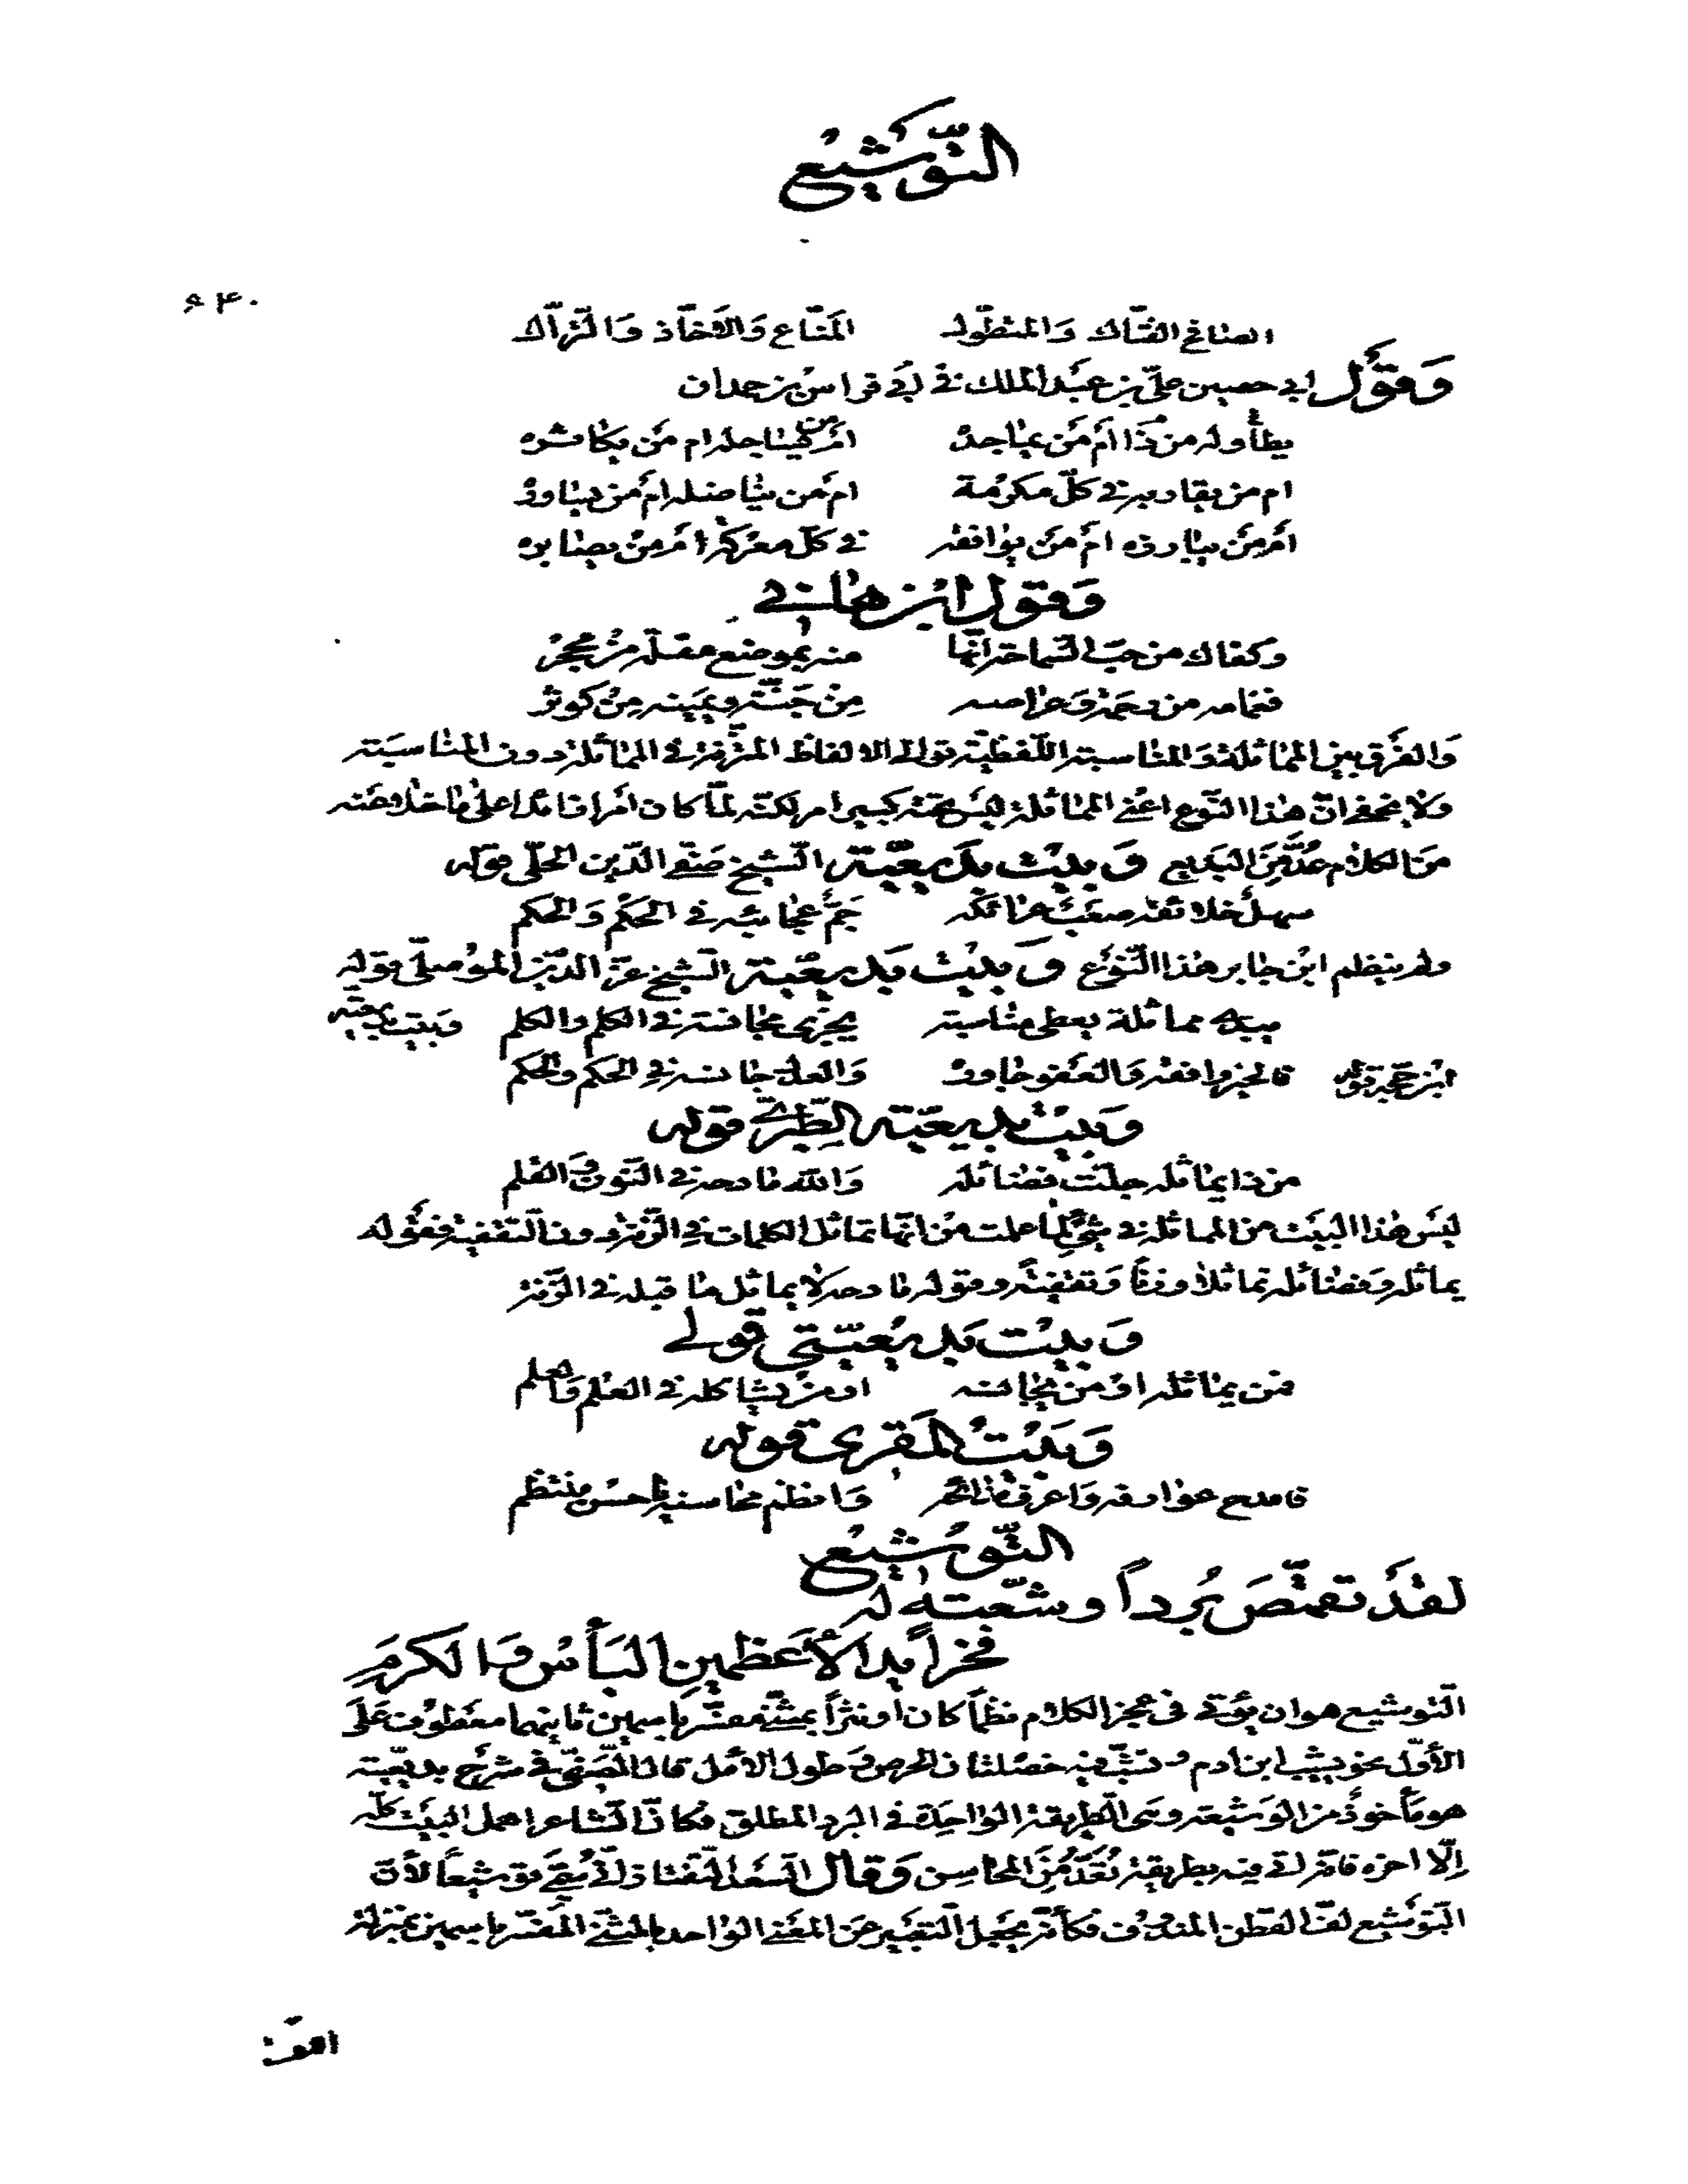 التّوشيع
الصافح الفتّاك والمتطوّل المنّاع والاخّاذ والترّاك
وَقول ابي حصين عليّ بن عبد الملك في ابي فراس بن حمدان
يطاوله من ذا أم من يماجده امن يساجله ام من يكاثره
ام من يقاربه في كلّ مكرمة ام من يناضله ام من يساوره
أم من يبارزه ام من يوافقه في كلّ معركة ام من يصابره
وقول ابن هاني
وكفاك من حبّ السّماحة انّها منه بموضع مقلة من محجر
فغمامه من رحمة وعراصه من جنّة ويمينه من كوثر
وَالفرق بين المماثلة وَالمناسبة اللّفظيّة توالي الالفاظ المتّزنة في المماثلة دون المناسبة
ولا يخفى انّ هذا النّوع اعني المماثلة ليس تحته كبير امر لكنّه لمّا كان امرا زائدا على ما خلا عنه
من الكلام عُدّ من البديع وَبيت بديعيّة الشيخ صفيّ الدّين الحلّي قوله
سهل خلائقه صعب عرائكه جمّ عجائبه في الحكم وَالحكم
ولم ينظم ابن جابر هذا النّوع وَبيت بديعيّة الشيخ عزّ الدّين الموصلي قوله
يبدي مماثلة يعطي مناسبة يجزي مجانسة في الكلم والكلم وبيت بديعيّة
ابن حجّة قوله فالخير وافقه وَالعفو جاوره وَالعدل جانسه في الحكم والحكم
وَبيت بديعيّة الطبري قوله
من ذا يماثله جلّت فضائله وَالله مادحه في النّون والقلم
ليس هذا البيت من المماثلة في شيء لما علمت من انّها تماثل الكلمات في الوزن دون التقفية فقوله
يماثله وفضائله تماثلا وزناً وَتقفيةً وقوله مادحه لا يماثل ما قبله في الوزن
وَبيت بديعيّتي قولي
من يماثله او من يجانسه او من يشاكله في العلم وَالعلم
وَبيت المقري قوله
فامدح عوارفه وَاعرف مدائحه وَانظم محاسنه باحسن منتظم
التّوشيع
لقد تقمّص بُرداً وشّعته له
فخراً يد الأعظمين البأس وَالكرم
التّوشيع هو ان يؤتى في عجز الكلام نظماً كان او نثراً بمثنّى مفسّر باسمين ثانيهما معطوف على
الأوّل نحو يشيب ابن ادم وتشبّ فيه خصلتان الحرص وطول الأمل قال الصّفيّ في شرح بديعيّته
هو مأخوذ من الوشيعة وهي الطريقة الواحدة في البرد المطلق فكانّ الشاعر اهمل البيت كلّه
إلّا اخره فانّه اتى فيه بطريقة تُعَدّ من المحاسن وَقال السّعد التّفتازاني سمّي توشيعاً لأنّ
التوشيع لفّ القطن المندوف فكأنّه يجعل التعبير عن المعنى الواحد بالمثنّى المفسّر باسمين بمنزلة